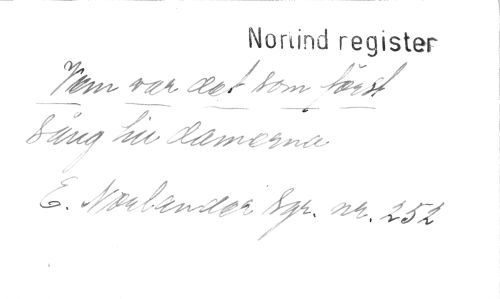 Norlind register
Vem var det som först
sång hu damerna
E. Norlander Sgr. nr. 252